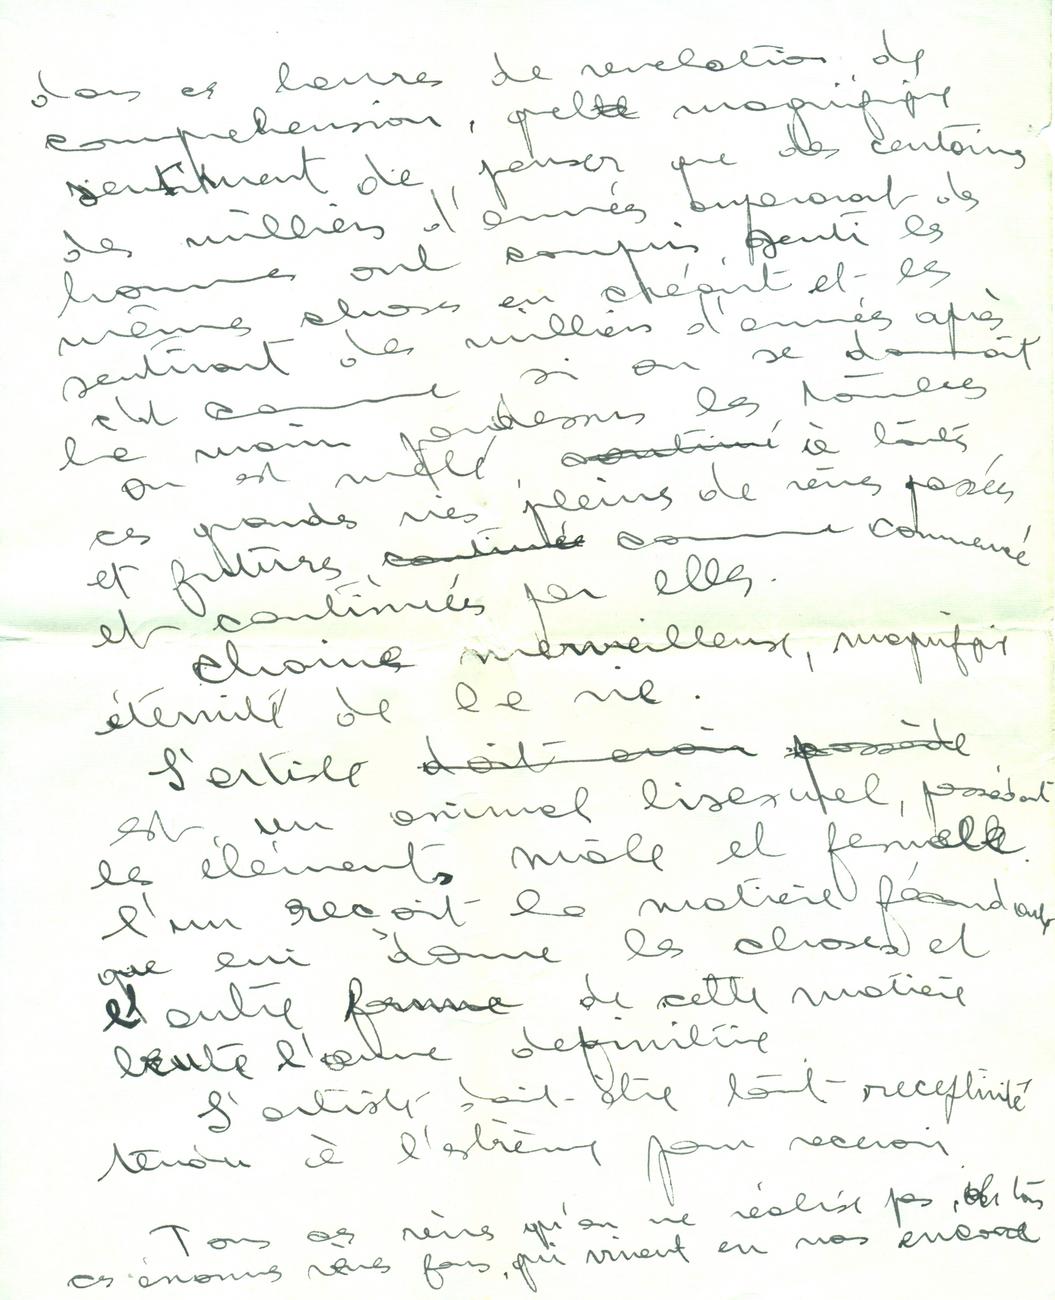 dans ces heures de revelation de
comprehension, quelle magnifique
sentiment de penser que des centaines
des milliers d'années auparavat des
hommes ont compris senti les
mêmes choses en créant et les
sentiront des milliers d'années après
c'est comme si on se donnait
la main pardessus les tombes
on est mêlé continué à toutes
ces grandes vies pleines de rêves passées
et futures continuée comme commencé
et continuées par elles.
chaine merveilleuse, magnifique
éternité de la vie.
L'artiste doit avoir possède
est un animal bisexuel, possédant
les éléments mâle et femelle.
l'un recoit la matière fécondante
que lui donne les choses et
l'autre forme de cette matière
l'œuvre definitive
L'artiste doit être tout receptivité
tendu à l'extrême pour recevoir
Tous ces rêves qu'on ne réalise pas, tous
ces énormes rêves fous, qui vivent en nos encore